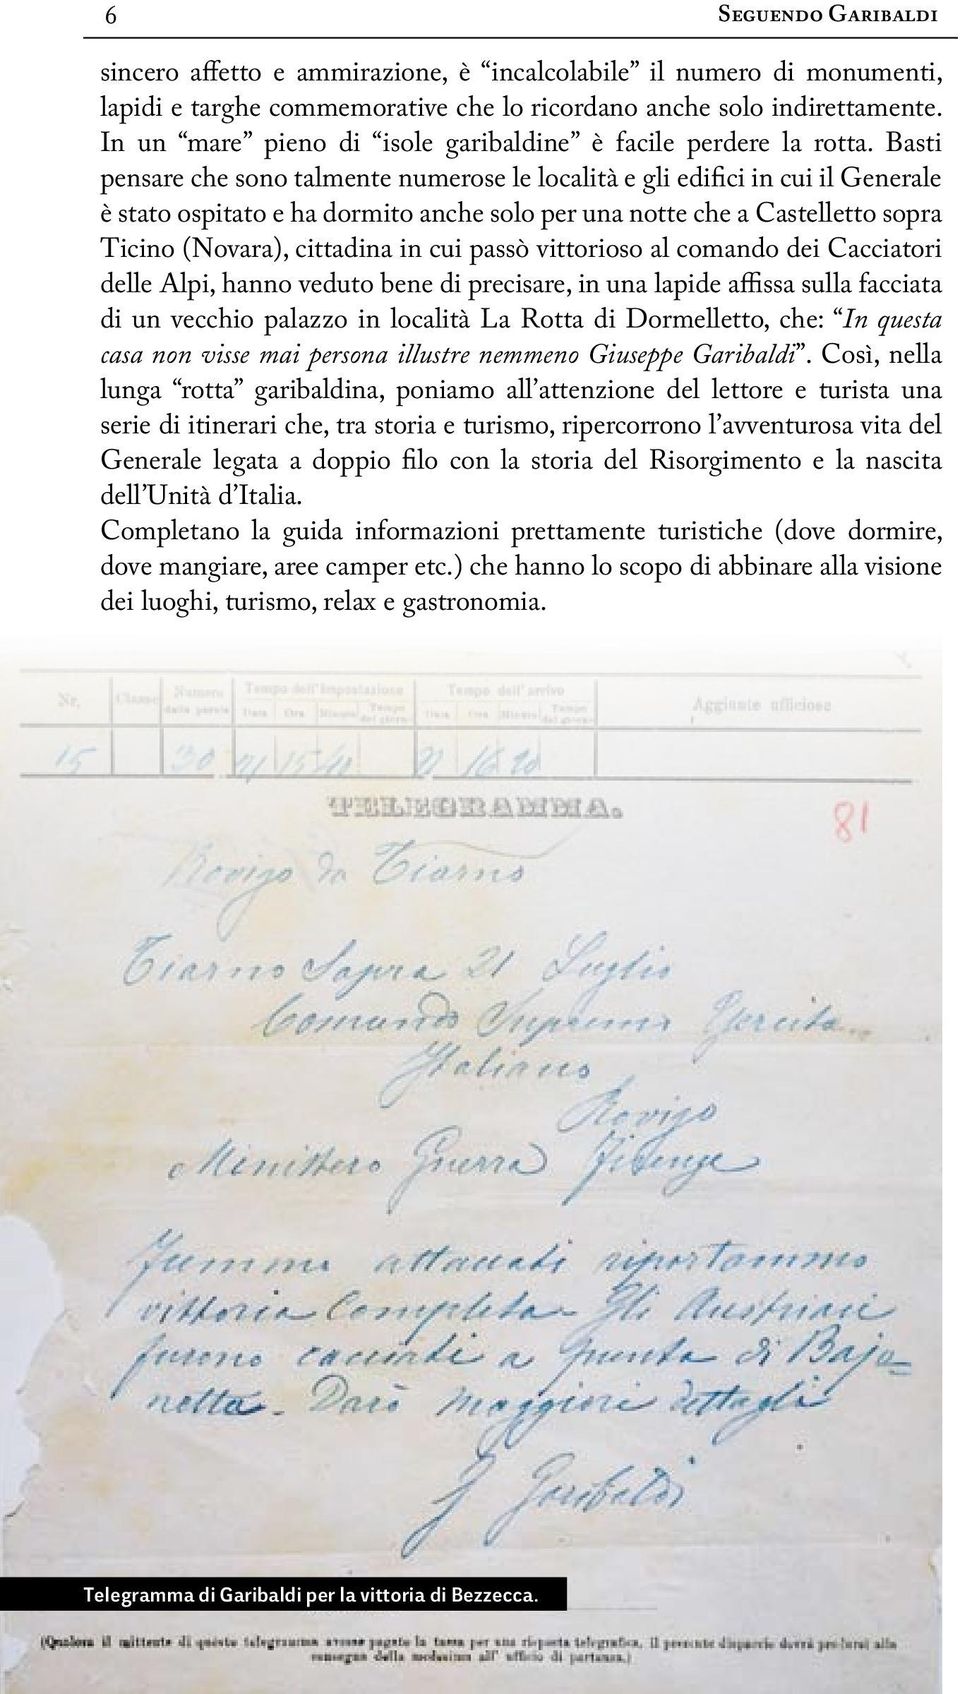 6
Seguendo Garibaldi
sincero affetto e ammirazione, è “incalcolabile” il numero di monumenti,
lapidi e targhe commemorative che lo ricordano anche solo indirettamente.
In un “mare” pieno di “isole garibaldine” è facile perdere la rotta. Basti
pensare che sono talmente numerose le località e gli edifici in cui il Generale
è stato ospitato e ha dormito anche solo per una notte che a Castelletto sopra
Ticino (Novara), cittadina in cui passò vittorioso al comando dei Cacciatori
delle Alpi, hanno veduto bene di precisare, in una lapide affissa sulla facciata
di un vecchio palazzo in località La Rotta di Dormelletto, che: “In questa
casa non visse mai persona illustre nemmeno Giuseppe Garibaldi”. Così, nella
lunga “rotta” garibaldina, poniamo all’attenzione del lettore e turista una
serie di itinerari che, tra storia e turismo, ripercorrono l’avventurosa vita del
Generale legata a doppio filo con la storia del Risorgimento e la nascita
dell’Unità d’Italia.
Completano la guida informazioni prettamente turistiche (dove dormire,
dove mangiare, aree camper etc.) che hanno lo scopo di abbinare alla visione
dei luoghi, turismo, relax e gastronomia.
Nr. Classe Numero delle parole Tempo dell'Impostazione Data Ora Minuto Tempo del giorno Tempo dell'arrivo Data Ora Minuto Tempo del giorno Aggiunte ufficiose
15 30 21 15 41 21 16 20
TELEGRAMMA.
81
Rovigo da Tiarno
Tiarno Sopra 21 Luglio
Comando Supremo Esercito
Italiano
Rovigo
Ministero Guerra Firenze
Fummo attaccati riportammo
vittoria completa Gli Austriaci
furono cacciati a punta di Bajo
netta. Darò maggiori dettagli
G Garibaldi
Telegramma di Garibaldi per la vittoria di Bezzecca.
(Qualora il mittente di questo telegramma avesse pagato la tassa per una risposta telegrafica, il presente dispaccio dovrà prodursi alla
consegna della medesima all' ufficio di partenza.)